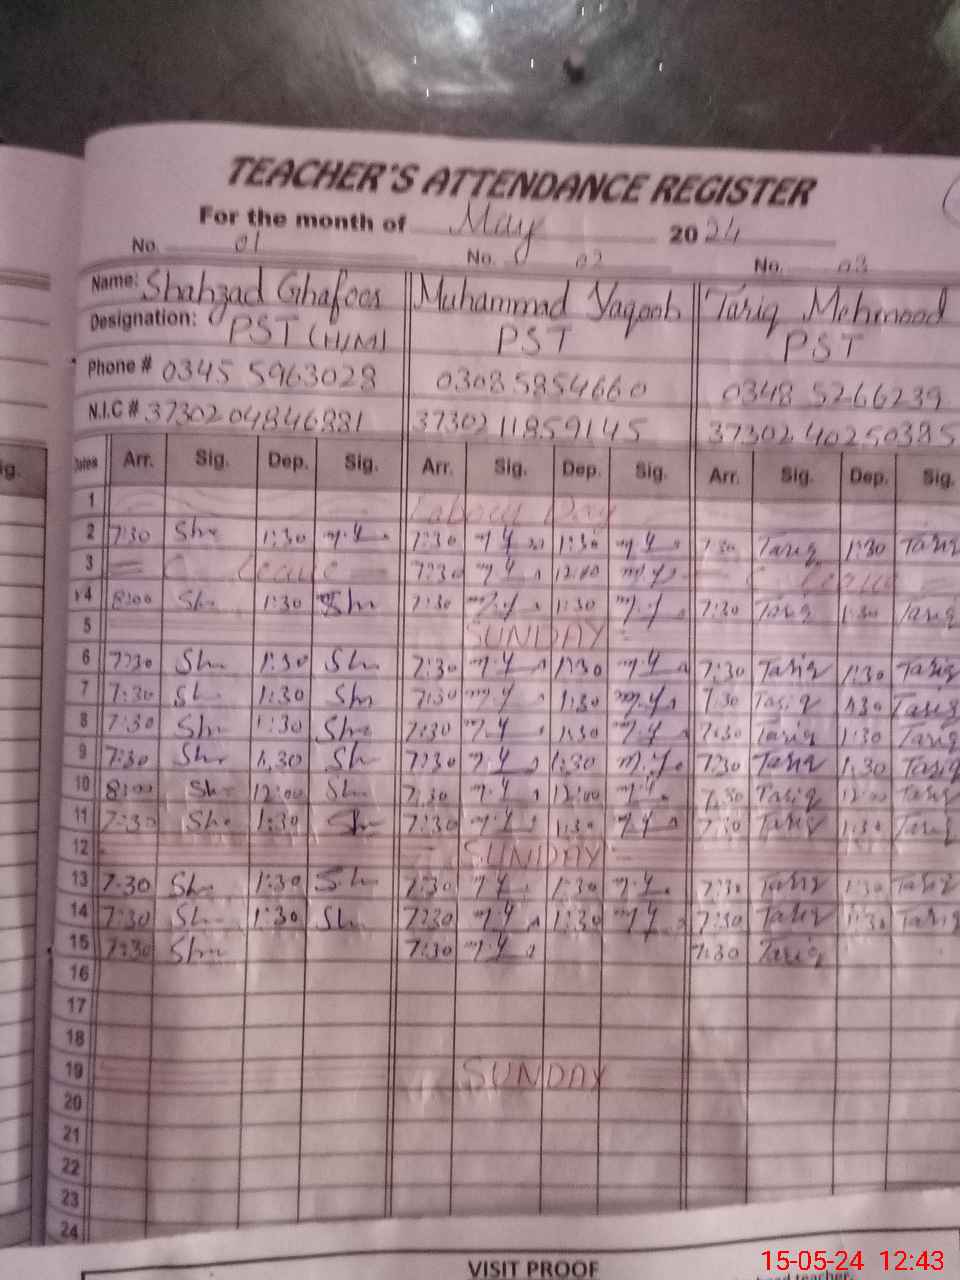 TEACHER'S ATTENDANCE REGISTER
For the month of May 2024
No. 01 No. 02 No. 03
Name: Shahzad Ghafoor Muhammad Yaqoob Tariq Mehmood
Designation: PST (H/M) PST PST
Phone # 0345 5963028 03085854660 0348 5266239
N.I.C # 3730204846881 3730211859145 3730240250385
ig. Dates Arr. Sig. Dep. Sig. Arr. Sig. Dep. Sig. Arr. Sig. Dep. Sig.
1 Labour Day
2 7:30 Sh 1:30 m.y 7:30 m.y 1:30 m.y 7:30 Tariq 1:30 Tariq
3 C. Leave 7:30 m.y 12:00 m.y C. Leave
4 8:00 Sh 1:30 Sh 7:30 m.y 1:30 m.y 7:30 Tariq 1:30 Tariq
5 SUNDAY
6 7:30 Sh 1:30 Sh 7:30 m.y 1:30 m.y 7:30 Tariq 1:30 Tariq
7 7:30 Sh 1:30 Sh 7:30 m.y 1:30 m.y 7:30 Tariq 1:30 Tariq
8 7:30 Sh 1:30 Sh 7:30 m.y 1:30 m.y 7:30 Tariq 1:30 Tariq
9 7:30 Sh 1:30 Sh 7:30 m.y 1:30 m.y 7:30 Tariq 1:30 Tariq
10 8:00 Sh 12:00 Sh 7:30 m.y 12:00 m.y 7:30 Tariq 12:00 Tariq
11 7:30 Sh 1:30 Sh 7:30 m.y 1:30 m.y 7:30 Tariq 1:30 Tariq
12 SUNDAY
13 7:30 Sh 1:30 Sh 7:30 m.y 1:30 m.y 7:30 Tariq 1:30 Tariq
14 7:30 Sh 1:30 Sh 7:30 m.y 1:30 m.y 7:30 Tariq 1:30 Tariq
15 7:30 Sh 7:30 m.y 7:30 Tariq
16
17
18
19 SUNDAY
20
21
22
23
24
VISIT PROOF
15-05-24 12:43
head teacher